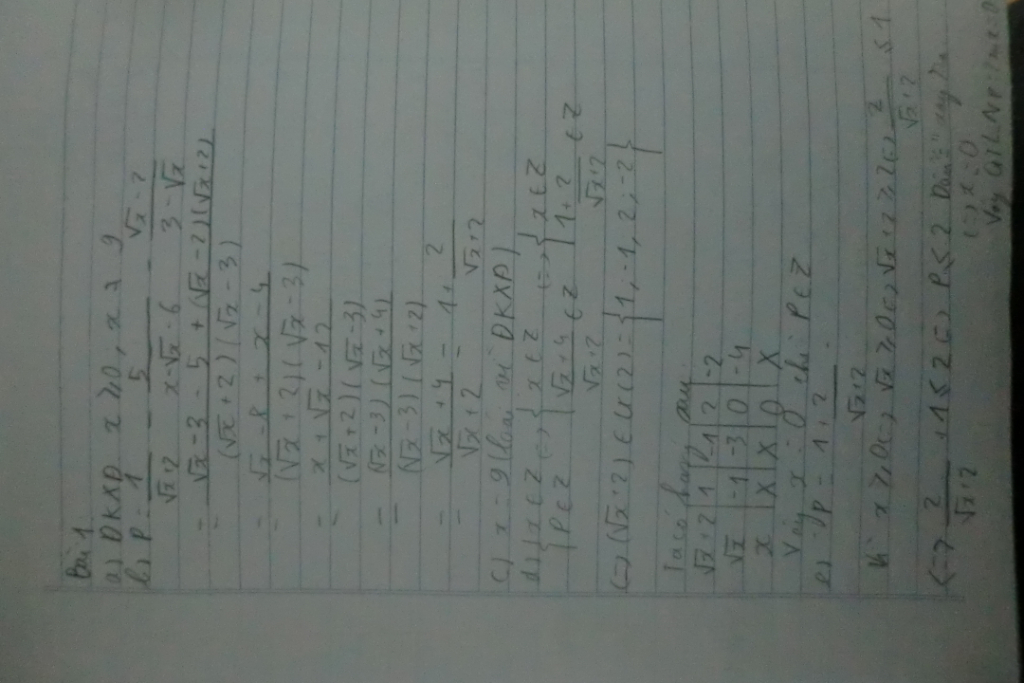 Bài 1
a) ĐKXĐ x ≥ 0, x ≠ 9
b) P = 1/(√x+2) - 5/(x-√x-6) - (√x-2)/(3-√x)
= (√x-3-5+(√x-2)(√x+2))/((√x+2)(√x-3))
= (√x-8+x-4)/((√x+2)(√x-3))
= (x+√x-12)/((√x+2)(√x-3))
= ((√x-3)(√x+4))/((√x-3)(√x+2))
= (√x+4)/(√x+2) = 1+2/(√x+2)
c) x = 9 (loại vì ĐKXĐ)
d) {x∈Z {P∈Z (=) {x∈Z {(√x+4)/(√x+2)∈Z (=) {x∈Z {1+2/(√x+2)∈Z
(=) (√x+2)∈Ư(2)={1;-1,2;-2}
Ta có bảng sau
√x+2 | 1 | -1 | 2 | -2
√x | -1 | -3 | 0 | -4
x | X | X | 0 | X
Vậy x = 0 thì P∈Z
e) P = 1+2/(√x+2)
Vì x ≥ 0 (=) √x ≥ 0 (=) √x+2 ≥ 2 (=) 2/(√x+2) ≤ 1
(=) 2/(√x+2) +1 ≤ 2 (=) P ≤ 2 Dấu "=" xảy ra
(=) x = 0
Vậy GTLN P = 2 tại x = 0